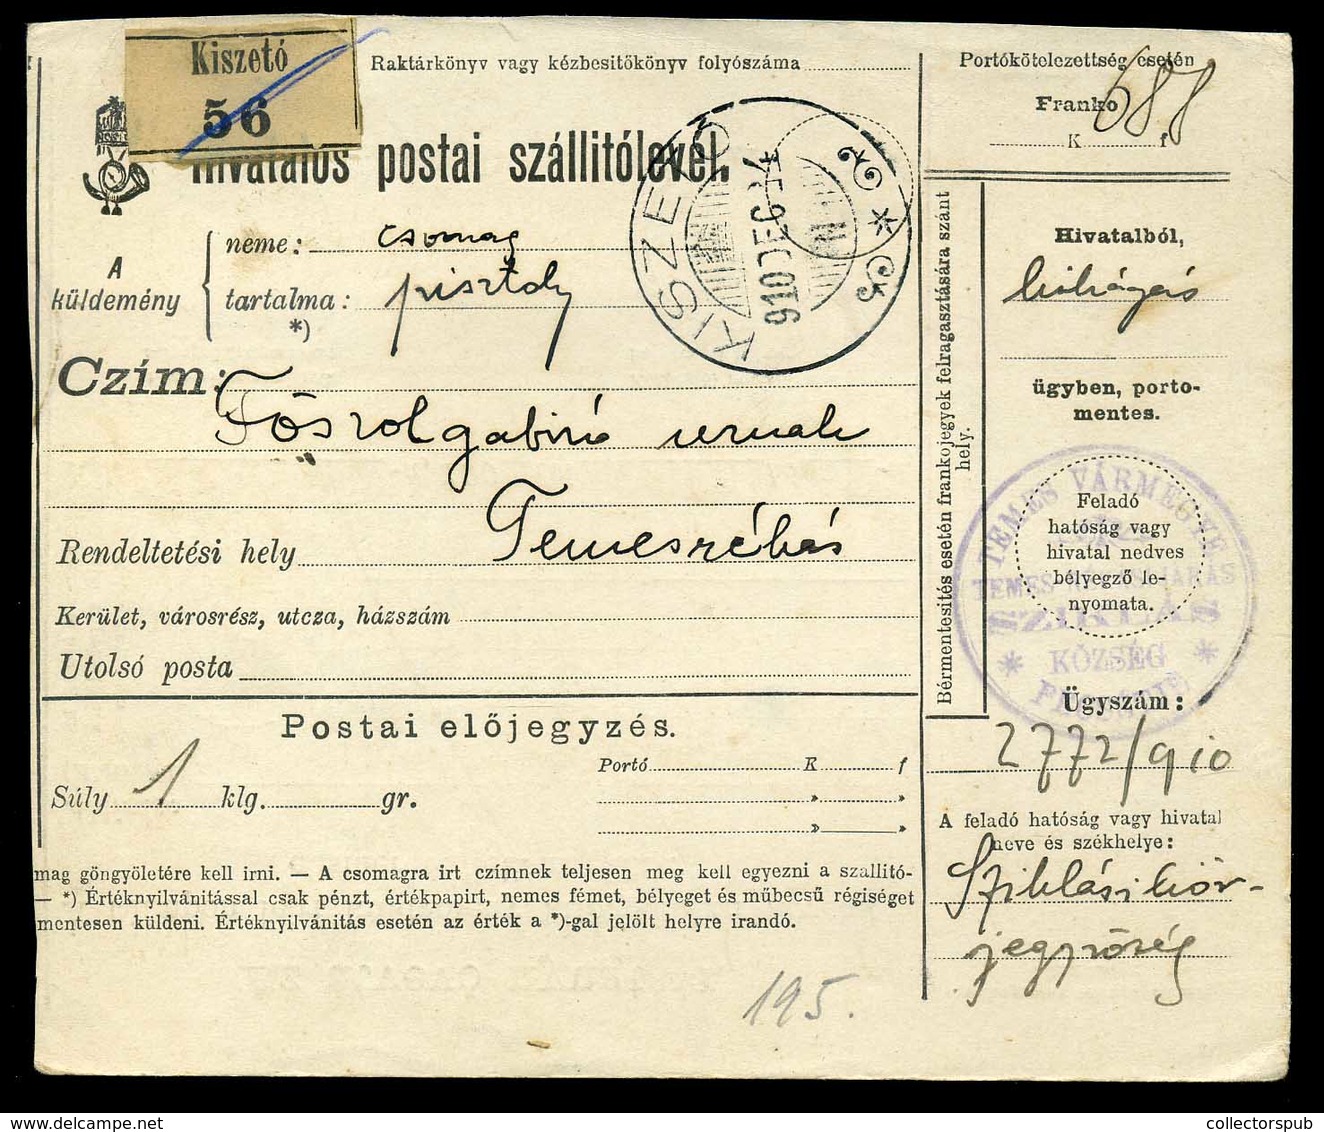 Kiszető
56
Raktárkönyv vagy kézbesitőkönyv folyószáma
Hivatalos postai szállitólevél.
A küldemény
neme: csomag
tartalma: pisztoly
*)
KISZETŐ
910 DEC 14
Czím: Főszolgabiró urnak
Rendeltetési hely Temesrékás
Kerület, városrész, utcza, házszám
Utolsó posta
Postai előjegyzés.
Súly 1 klg. gr.
Portó K f
» »
» »
mag göngyöletére kell irni. — A csomagra irt czímnek teljesen meg kell egyezni a szallitó-
— *) Értéknyilvánitással csak pénzt, értékpapirt, nemes fémet, bélyeget és műbecsű régiséget
mentesen küldeni. Értéknyilvánitás esetén az érték a *)-gal jelölt helyre irandó.
195.
Bérmentesités esetén frankojegyek felragasztására szánt
hely.
Portókötelezettség esetén
Franko
688
K f
Hivatalból,
kihágás
ügyben, porto-
mentes.
Feladó
hatóság vagy
hivatal nedves
bélyegző le-
nyomata.
TEMES VÁRMEGYE
SZIKLÁS
KÖZSÉG
Ügyszám:
2772/910
A feladó hatóság vagy hivatal
neve és székhelye:
Sziklási kör-
jegyzőség
collectorspub